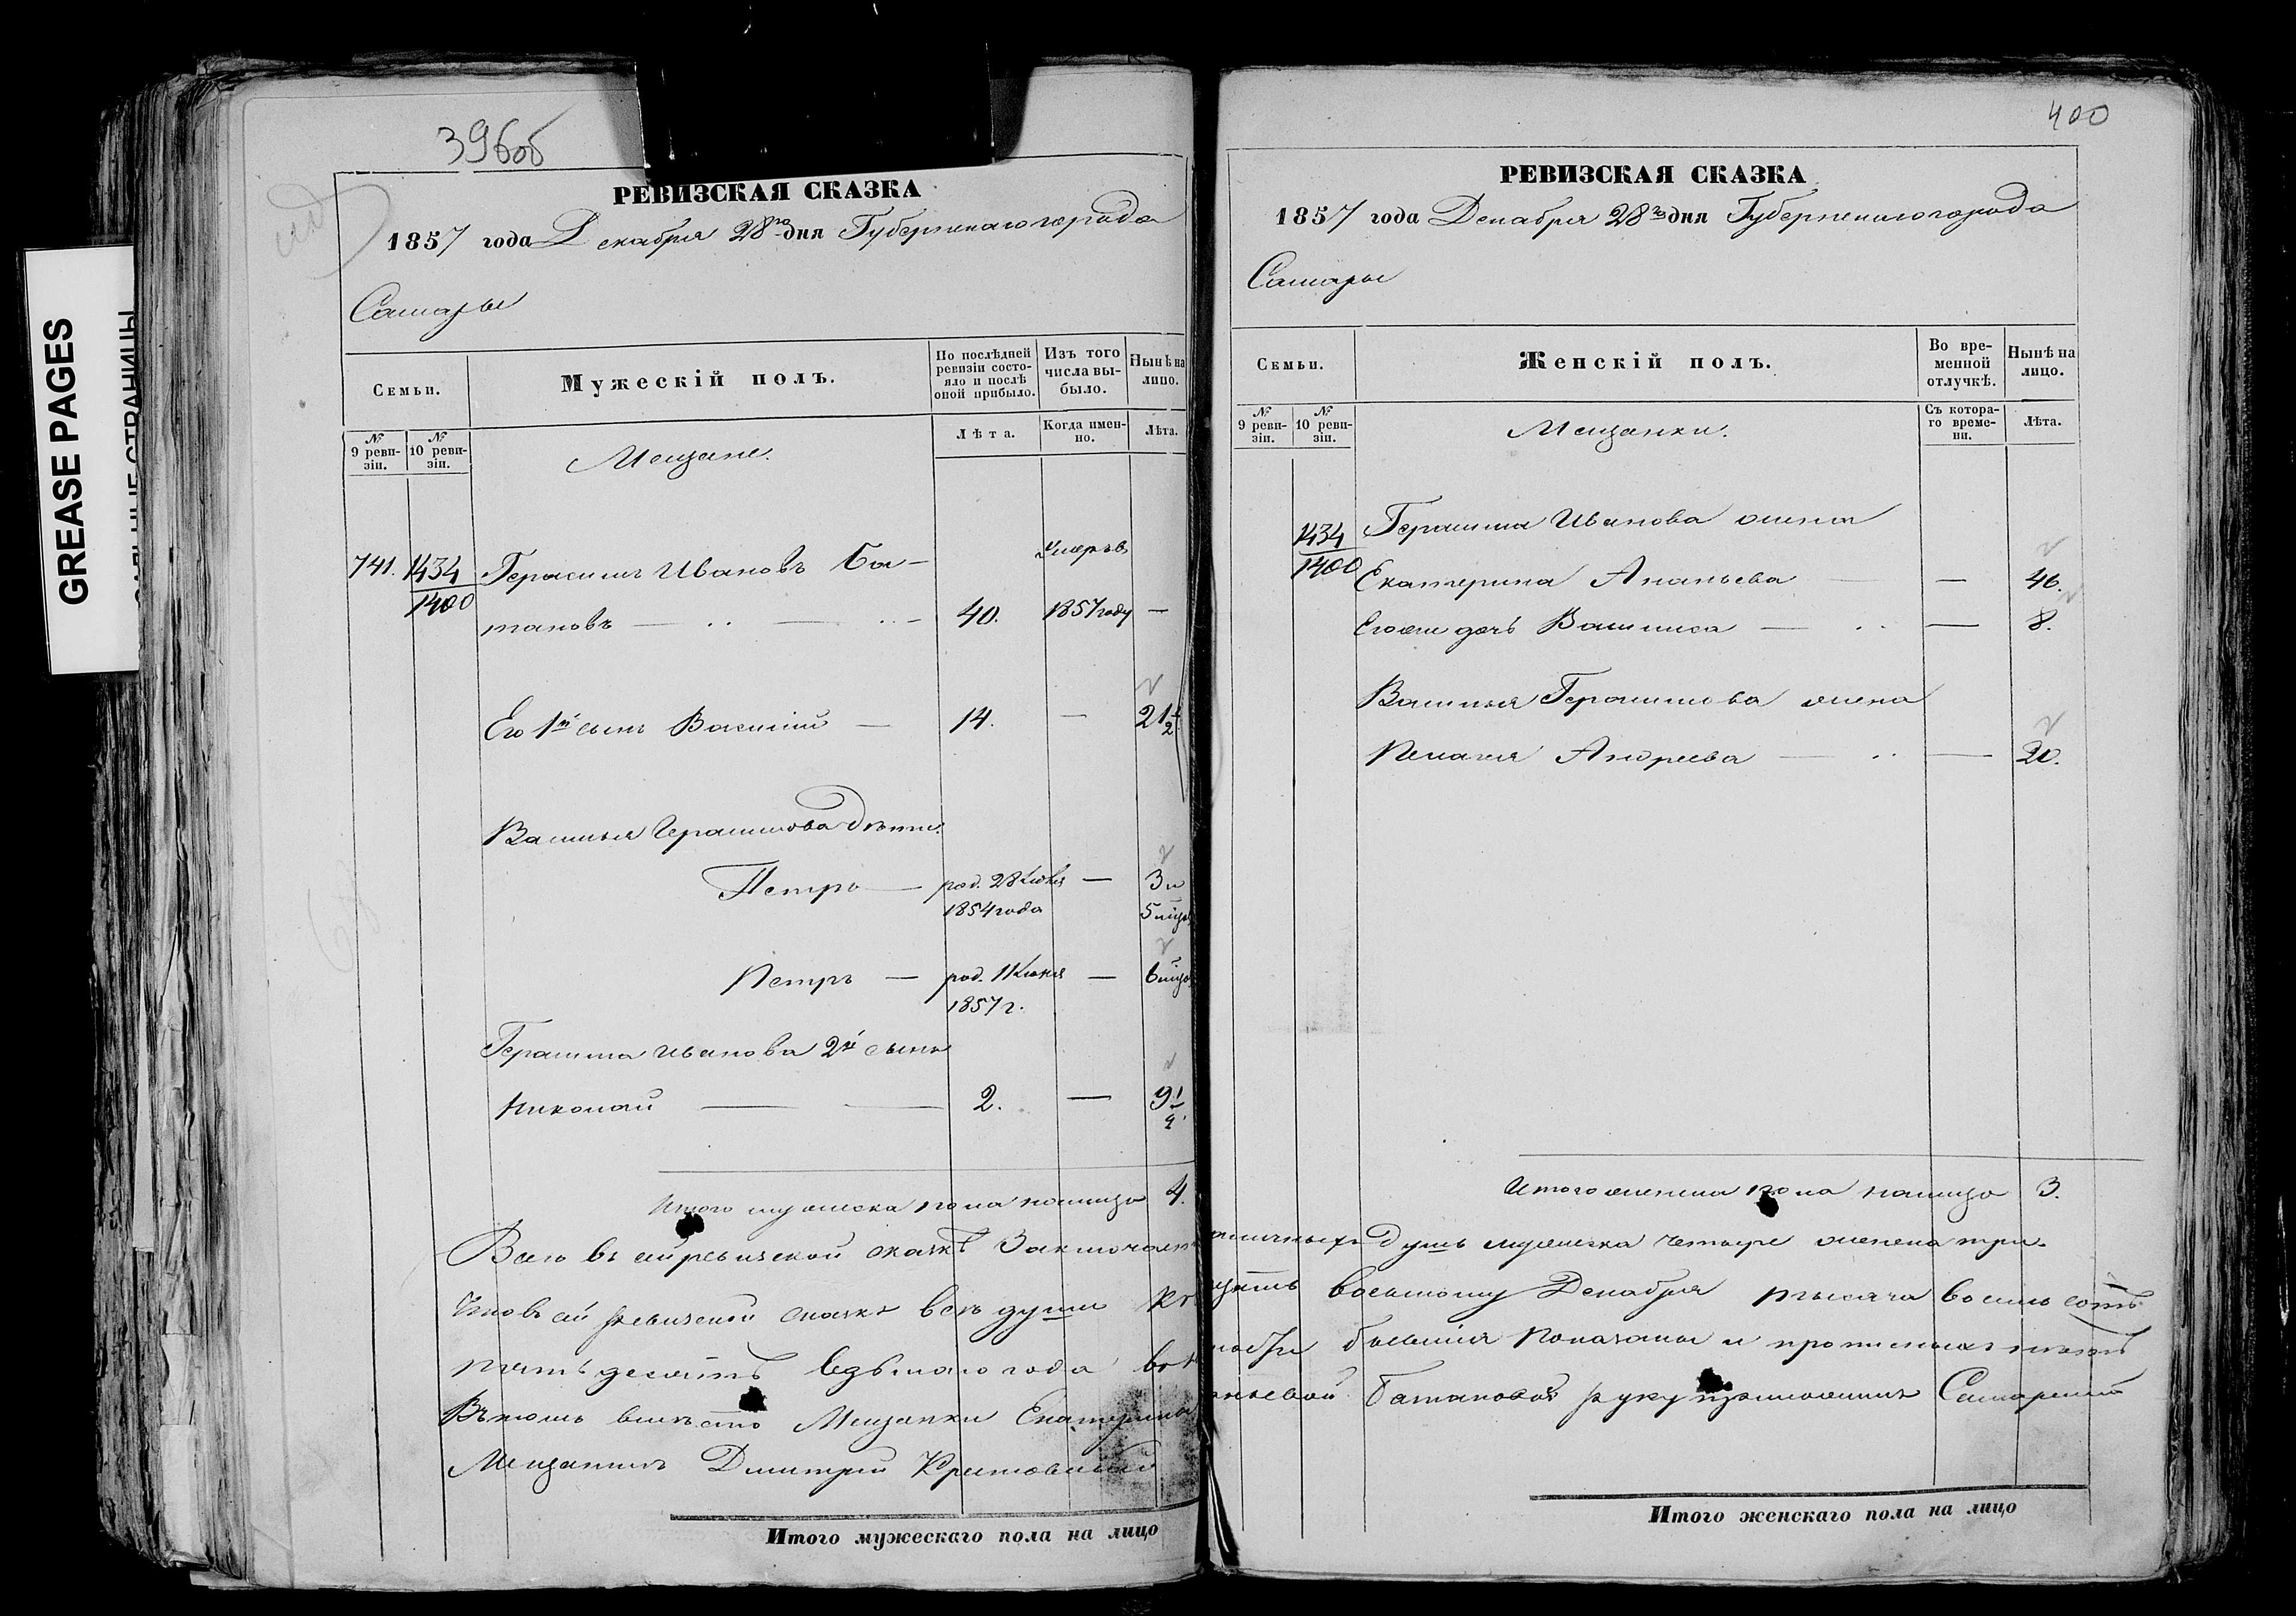 GREASE PAGES
396об
РЕВИЗСКАЯ СКАЗКА
1857 года Декабря 28го дня Губернскаго города
Самары
Семьи.
Мужескій полъ.
По послѣдней ревизіи состояло и послѣ оной прибыло.
Изъ того числа выбыло.
Нынѣ на лицо.
№ 9 ревизіи.
№ 10 ревизіи.
Мещане.
Лѣта.
Когда именно.
Лѣта.
741. 1434/1400 Герасимъ Ивановъ Ба- умеръ
тановъ — 40. 1857 году —
Его 1й сынъ Василий — 14. — 21 1/2
Василья Герасимова дѣти.
Петръ — род. 28 Июня — 3 и
1854 года 5 мѣся
Петръ — род. 11 Июня — 6 мѣся
1857 г.
Герасима Иванова 2й сынъ
Николай — 2. — 9 1/2.
Итого мужеска пола налицо 4.
Всего въ сей ревизской сказкѣ Заключает
Что въ сей ревизской сказке все души
пятьдесятъ седьмаго года
Въ томъ вместо Мещанки Екатерины
Мещанинъ Дмитрий
Итого мужескаго пола на лицо
400
РЕВИЗСКАЯ СКАЗКА
1857 года Декабря 28го дня Губернскаго города
Самары
Семьи.
Женскій полъ.
Во временной отлучкѣ.
Нынѣ на лицо.
№ 9 ревизіи.
№ 10 ревизіи.
Мещанки.
Съ котораго времени.
Лѣта.
1434/1400 Герасима Иванова жена
Екатерина Ананьева — — 46.
Его же дочь Василиса — — 8.
Василья Герасимова жена
Пелагея Андреева — — 20.
Итого женска пола налицо 3.
душъ мужеска четыре женска три.
цать восьмому Декабря тысяча восемь сотъ
бывшія показаны и прописныхъ нетъ
ньевой Батановой руку приложилъ Самарский
Итого женскаго пола на лицо